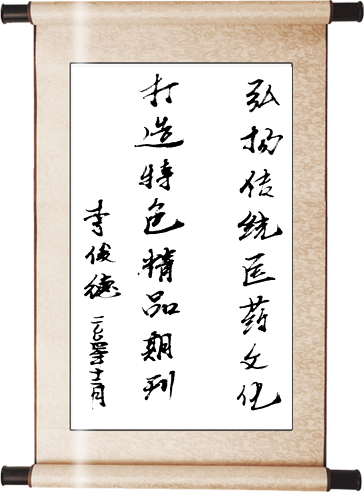 弘扬传统医药文化
打造特色精品期刊
李俊德 二〇〇四年十二月